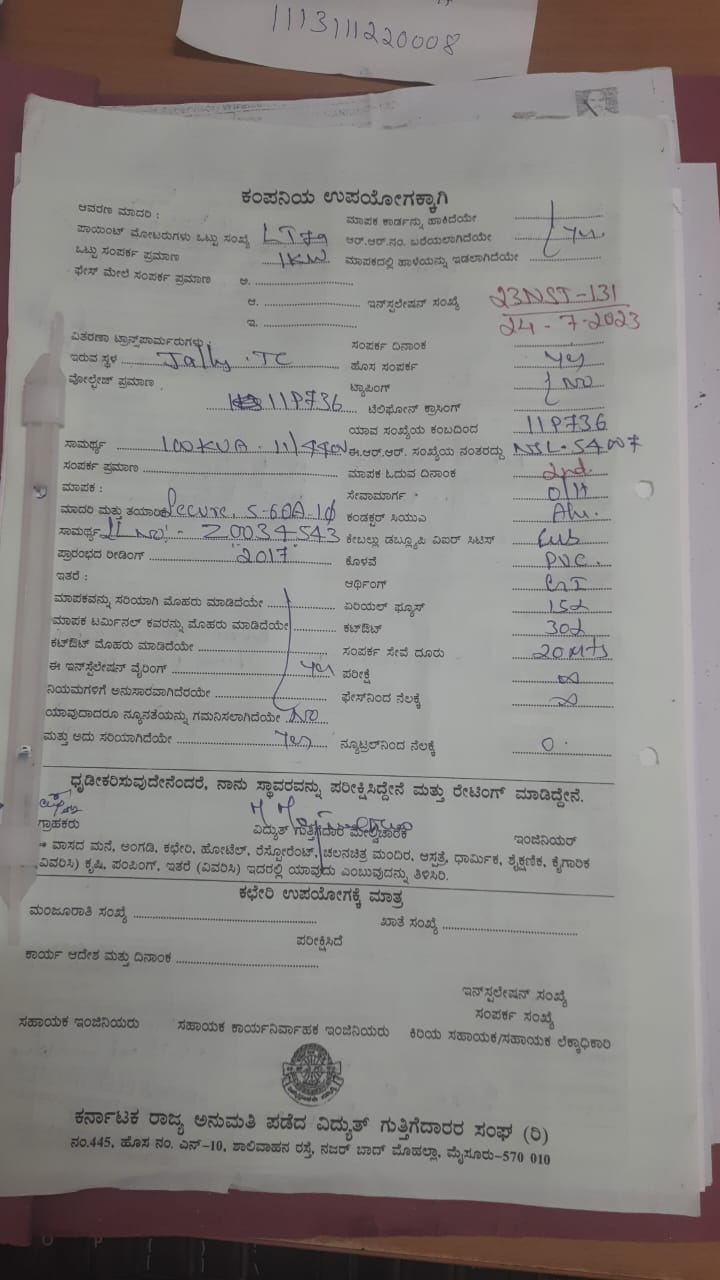 1113111220008
ಕಂಪನಿಯ ಉಪಯೋಗಕ್ಕಾಗಿ
ಆವರಣ ಮಾದರಿ : ಮಾಪಕ ಕಾರ್ಡನ್ನು ಹಾಕಿದೆಯೇ
ಪಾಯಿಂಟ್ ಮೋಟರುಗಳು ಒಟ್ಟು ಸಂಖ್ಯೆ ಆರ್.ಆರ್.ನಂ. ಬರೆಯಲಾಗಿದೆಯೇ Yes
ಒಟ್ಟು ಸಂಪರ್ಕ ಪ್ರಮಾಣ 1KW ಮಾಪಕದಲ್ಲಿ ಹಾಳೆಯನ್ನು ಇಡಲಾಗಿದೆಯೇ
ಫೇಸ್ ಮೇಲೆ ಸಂಪರ್ಕ ಪ್ರಮಾಣ ಅ.
ಆ. ಇನ್‌ಸ್ಟಲೇಷನ್ ಸಂಖ್ಯೆ 23NST-131
ಇ. 24-7-2023
ವಿತರಣಾ ಟ್ರಾನ್ಸ್‌ಪಾರ್ಮರುಗಳು ಸಂಪರ್ಕ ದಿನಾಂಕ
ಇರುವ ಸ್ಥಳ Jally.TC ಹೊಸ ಸಂಪರ್ಕ Yes
ವೋಲ್ಟೇಜ್ ಪ್ರಮಾಣ ಟ್ಯಾಪಿಂಗ್ NO
11P736 ಟೆಲಿಫೋನ್ ಕ್ರಾಸಿಂಗ್
ಯಾವ ಸಂಖ್ಯೆಯ ಕಂಬದಿಂದ 11P736
ಸಾಮರ್ಥ್ಯ 100KVA ಈ.ಆರ್.ಆರ್. ಸಂಖ್ಯೆಯ ನಂತರದ್ದು
ಸಂಪರ್ಕ ಪ್ರಮಾಣ ಮಾಪಕ ಓದುವ ದಿನಾಂಕ 2nd
ಮಾಪಕ : ಸೇವಾಮಾರ್ಗ O/H
ಮಾದರಿ ಮತ್ತು ತಯಾರಿಕೆ Secure. 5-60A-1Ø ಕಂಡಕ್ಟರ್ ಸಿಯುಎ Alu.
ಸಾಮರ್ಥ್ಯ Sl No - 20034543 ಕೇಬಲ್ಲು ಡಬ್ಲ್ಯೂಪಿ ವಿಐರ್ ಸಿಟಿಸ್
ಪ್ರಾರಂಭದ ರೀಡಿಂಗ್ "2017" ಕೊಳವೆ PVC.
ಇತರೆ : ಆರ್ಥಿಂಗ್ GI
ಮಾಪಕವನ್ನು ಸರಿಯಾಗಿ ಮೊಹರು ಮಾಡಿದೆಯೇ ಏರಿಯಲ್ ಫ್ಯೂಸ್
ಮಾಪಕ ಟರ್ಮಿನಲ್ ಕವರನ್ನು ಮೊಹರು ಮಾಡಿದೆಯೇ ಕಟ್‌ಔಟ್
ಕಟ್‌ಔಟ್ ಮೊಹರು ಮಾಡಿದೆಯೇ ಸಂಪರ್ಕ ಸೇವೆ ದೂರು 20Mts
ಈ ಇನ್‌ಸ್ಟೆಲೇಷನ್ ವೈರಿಂಗ್ Yes ಪರೀಕ್ಷೆ ∞
ನಿಯಮಗಳಿಗೆ ಅನುಸಾರವಾಗಿದೆರಯೇ ಫೇಸ್‌ನಿಂದ ನೆಲಕ್ಕೆ ∞
ಯಾವುದಾದರೂ ನ್ಯೂನತೆಯನ್ನು ಗಮನಿಸಲಾಗಿದೆಯೇ NO
ಮತ್ತು ಅದು ಸರಿಯಾಗಿದೆಯೇ Yes ನ್ಯೂಟ್ರಲ್‌ನಿಂದ ನೆಲಕ್ಕೆ 0.
ಧೃಡೀಕರಿಸುವುದೇನೆಂದರೆ, ನಾನು ಸ್ಥಾವರವನ್ನು ಪರೀಕ್ಷಿಸಿದ್ದೇನೆ ಮತ್ತು ರೇಟಿಂಗ್ ಮಾಡಿದ್ದೇನೆ.
ಗ್ರಾಹಕರು ವಿದ್ಯುತ್ ಗುತ್ತಿಗೆದಾರ ಮೇಲ್ವಿಚಾರಕ ಇಂಜಿನಿಯರ್
ವಾಸದ ಮನೆ, ಅಂಗಡಿ, ಕಛೇರಿ, ಹೋಟೆಲ್, ರೆಸ್ಟೋರೆಂಟ್, ಚಲನಚಿತ್ರ ಮಂದಿರ, ಆಸ್ಪತ್ರೆ, ಧಾರ್ಮಿಕ, ಶೈಕ್ಷಣಿಕ, ಕೈಗಾರಿಕ
(ವಿವರಿಸಿ) ಕೃಷಿ, ಪಂಪಿಂಗ್, ಇತರೆ (ವಿವರಿಸಿ) ಇದರಲ್ಲಿ ಯಾವುದು ಎಂಬುವುದನ್ನು ತಿಳಿಸಿರಿ.
ಕಛೇರಿ ಉಪಯೋಗಕ್ಕೆ ಮಾತ್ರ
ಮಂಜೂರಾತಿ ಸಂಖ್ಯೆ ಖಾತೆ ಸಂಖ್ಯೆ
ಪರೀಕ್ಷಿಸಿದೆ
ಕಾರ್ಯ ಆದೇಶ ಮತ್ತು ದಿನಾಂಕ
ಇನ್‌ಸ್ಟಲೇಷನ್ ಸಂಖ್ಯೆ
ಸಂಪರ್ಕ ಸಂಖ್ಯೆ
ಸಹಾಯಕ ಇಂಜಿನಿಯರು ಸಹಾಯಕ ಕಾರ್ಯನಿರ್ವಾಹಕ ಇಂಜಿನಿಯರು ಕಿರಿಯ ಸಹಾಯಕ/ಸಹಾಯಕ ಲೆಕ್ಕಾಧಿಕಾರಿ
ಕರ್ನಾಟಕ ರಾಜ್ಯ ಅನುಮತಿ ಪಡೆದ ವಿದ್ಯುತ್ ಗುತ್ತಿಗೆದಾರರ ಸಂಘ (ರಿ)
ನಂ.445, ಹೊಸ ನಂ. ಎನ್-10, ಶಾಲಿವಾಹನ ರಸ್ತೆ, ನಜರ್ ಬಾದ್ ಮೊಹಲ್ಲಾ, ಮೈಸೂರು-570 010